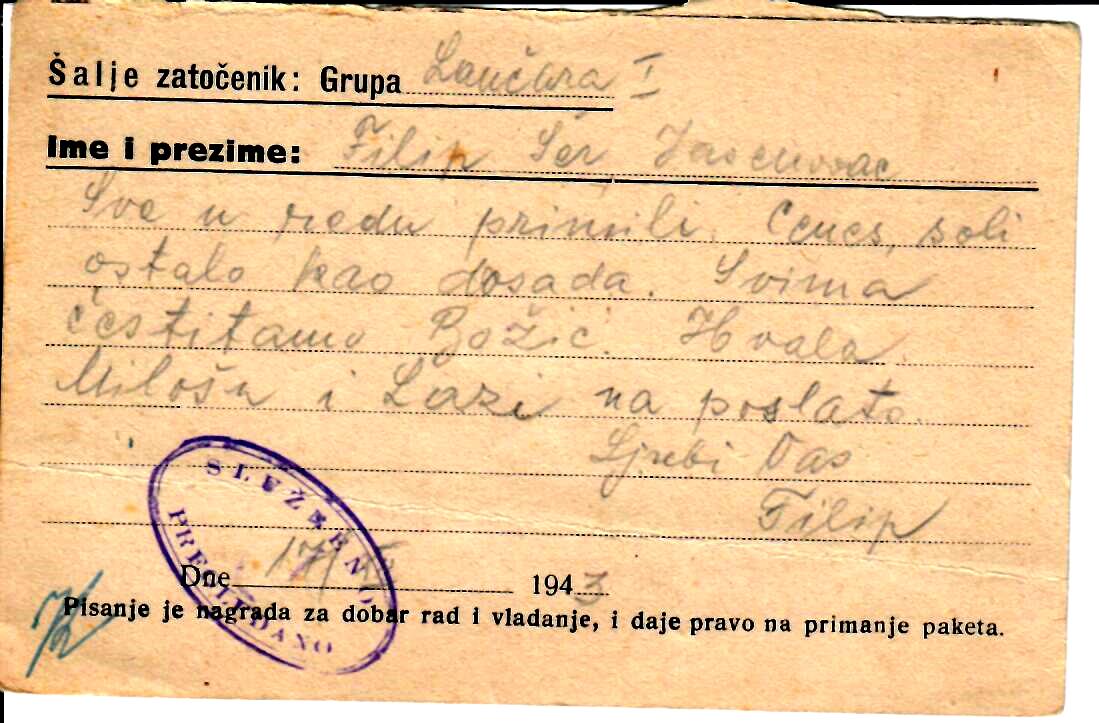 Šalje zatočenik: Grupa Lančara I
Ime i prezime: Filip Šer, Jasenovac
Sve u redu primili. soli
ostalo kao dosada. Svima
čestitamo Božić. Hvala
Milošu i Lazi na poslato.
Ljubi Vas
Filip
SLUŽBENO
PREGLEDANO
Dne 17/ 1943
Pisanje je nagrada za dobar rad i vladanje, i daje pravo na primanje paketa.